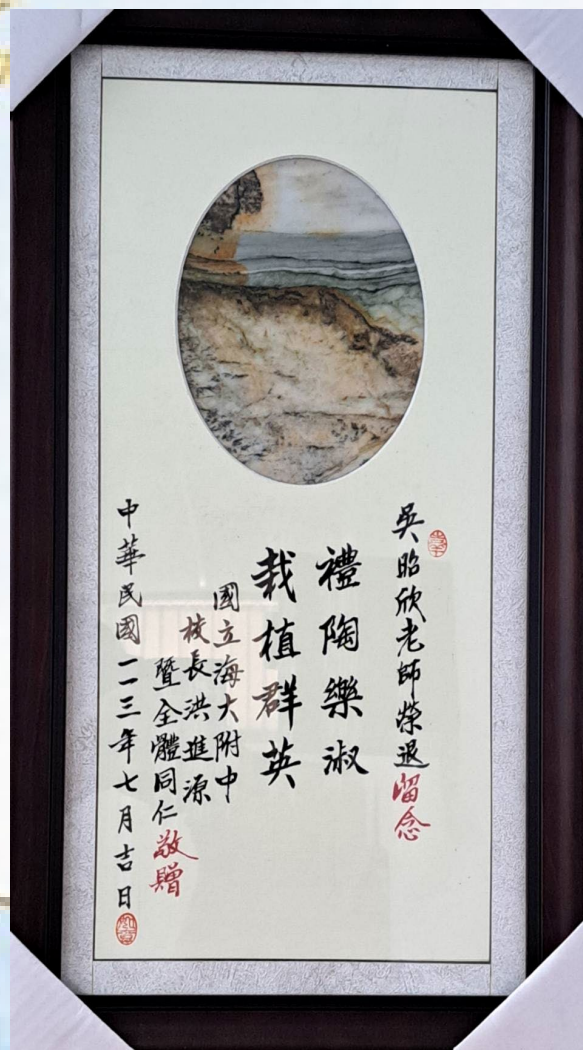 吳昭欣老師榮退留念
禮陶樂淑
栽植群英
國立海大附中
校長洪進源
暨全體同仁敬贈
中華民國一一三年七月吉日